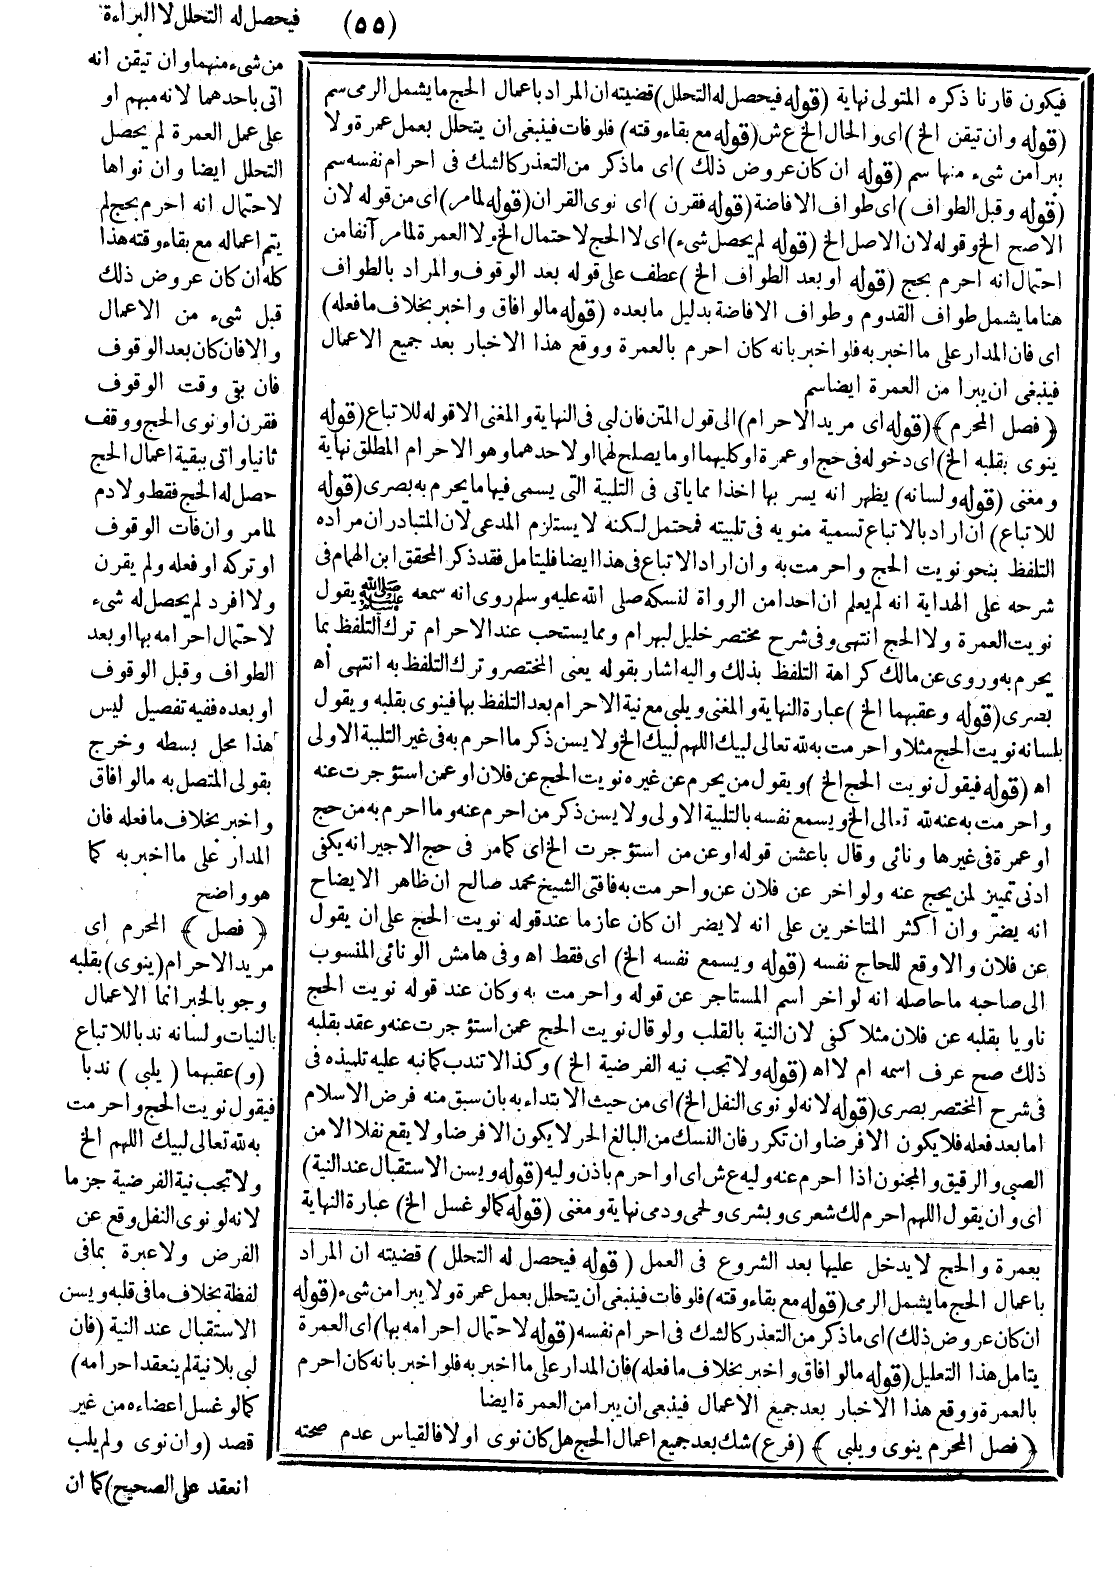 (٥٥)
فيحصل له التحلل لا البراءة
من شىء منهما وان تيقن انه
اتى باحدهما لانه مبهم او
على عمل العمرة لم يحصل
التحلل ايضا وان نواها
لاحتمال انه احرم بحج لم
يتم اعماله مع بقاء وقته هذا
كله ان كان عروض ذلك
قبل شىء من الاعمال
والا فان كان بعد الوقوف
فان بقى وقت الوقوف
فقرن او نوى الحج ووقف
ثانيا واتى ببقية اعمال الحج
حصل له الحج فقط ولا دم
لما مر وان فات الوقوف
او تركه او فعله ولم يقرن
ولا افرد لم يحصل له شىء
لاحتمال احرامه بها او بعد
الطواف وقبل الوقوف
او بعده ففيه تفصيل ليس
هذا محل بسطه وخرج
بقولى المتصل به مالو افاق
واخبر بخلاف ما فعله فان
المدار على ما اخبر به كما
هو واضح
﴿ فصل ﴾ المحرم اى
مريد الاحرام (ينوى) بقلبه
وجوبا لخبر انما الاعمال
بالنيات ولسانه ندبا للاتباع
(و) عقبهما ( يلبى ) ندبا
فيقول نويت الحج واحرمت
به لله تعالى لبيك اللهم الخ
ولا تجب نية الفرضية جزما
لانه لو نوى النفل وقع عن
الفرض ولا عبرة بما فى
لفظه بخلاف ما فى قلبه ويسن
الاستقبال عند النية (فان
لبى بلا نية لم ينعقد احرامه)
كما لو غسل اعضاءه من غير
قصد (وان نوى ولم يلب
انعقد على الصحيح) كما ان
فيكون قارنا ذكره المتولى نهاية (قوله فيحصل له التحلل) قضيته ان المراد باعمال الحج ما يشمل الرمى سم
(قوله وان تيقن الخ) اى والحال الخ ع ش (قوله مع بقاء وقته) فلو فات فينبغى ان يتحلل بعمل عمرة ولا
يبرا من شىء منها سم (قوله ان كان عروض ذلك) اى ما ذكر من التعذر كالشك فى احرام نفسه سم
(قوله وقبل الطواف) اى طواف الافاضة (قوله فقرن) اى نوى القران (قوله لما مر) اى من قوله لان
الاصح الخ وقوله لان الاصل الخ (قوله لم يحصل شىء) اى لا الحج لاحتمال الخ ولا العمرة لما مر آنفا من
احتمال انه احرم بحج (قوله او بعد الطواف الخ) عطف على قوله بعد الوقوف والمراد بالطواف
هنا ما يشمل طواف القدوم وطواف الافاضة بدليل ما بعده (قوله مالو افاق واخبر بخلاف ما فعله)
اى فان المدار على ما اخبر به فلو اخبر بانه كان احرم بالعمرة ووقع هذا الاخبار بعد جميع الاعمال
فينبغى ان يبرا من العمرة ايضا سم
﴿ فصل المحرم ﴾ (قوله اى مريد الاحرام) الى قول المتن فان لبى فى النهاية والمغنى الا قوله للاتباع (قوله
ينوى بقلبه الخ) اى دخوله فى حج او عمرة او كليهما او ما يصلح لهما او لاحدهما وهو الاحرام المطلق نهاية
ومغنى (قوله ولسانه) يظهر انه يسر بها اخذا مما ياتى فى التلبية التى يسمى فيها ما يحرم به بصرى (قوله
للاتباع) ان اراد بالاتباع تسمية منويه فى تلبيته فمحتمل لكنه لا يستلزم المدعى لان المتبادر ان مراده
التلفظ بنحو نويت الحج واحرمت به وان اراد الاتباع فى هذا ايضا فليتامل فقد ذكر المحقق ابن الهمام فى
شرحه على الهداية انه لم يعلم ان احدا من الرواة لنسكه صلى الله عليه وسلم روى انه سمعه ﷺ يقول
نويت العمرة ولا الحج انتهى وفى شرح مختصر خليل لبهرام ومما يستحب عند الاحرام ترك التلفظ بما
يحرم به وروى عن مالك كراهة التلفظ بذلك واليه اشار بقوله يعنى المختصر وترك التلفظ به انتهى اه
بصرى (قوله وعقبهما الخ) عبارة النهاية والمغنى ويلبى مع نية الاحرام بعد التلفظ بها فينوى بقلبه ويقول
بلسانه نويت الحج مثلا واحرمت به لله تعالى لبيك اللهم لبيك الخ ولا يسن ذكر ما احرم به فى غير التلبية الاولى
اه (قوله فيقول نويت الحج الخ) ويقول من يحرم عن غيره نويت الحج عن فلان او عمن استؤجرت عنه
واحرمت به عنه لله تعالى الخ ويسمع نفسه بالتلبية الاولى ولا يسن ذكر من احرم عنه وما احرم به من حج
او عمرة فى غيرها ونائى وقال باعشن قوله او عن من استؤجرت الخ اى كما مر فى حج الاجير انه يكفى
ادنى تمييز لمن يحج عنه ولو اخر عن فلان عن واحرمت به فافتى الشيخ محمد صالح ان ظاهر الايضاح
انه يضر وان اكثر المتاخرين على انه لا يضر ان كان عازما عند قوله نويت الحج على ان يقول
عن فلان والا وقع للحاج نفسه (قوله ويسمع نفسه الخ) اى فقط اه وفى هامش الونائى المنسوب
الى صاحبه ما حاصله انه لو اخر اسم المستاجر عن قوله واحرمت به وكان عند قوله نويت الحج
ناويا بقلبه عن فلان مثلا كفى لان النية بالقلب ولو قال نويت الحج عمن استؤجرت عنه وعقد بقلبه
ذلك صح عرف اسمه ام لا اه (قوله ولا تجب نية الفرضية الخ) وكذا لا تندب كما نبه عليه تلميذه فى
فى شرح المختصر بصرى (قوله لانه لو نوى النفل الخ) اى من حيث الابتداء به بان سبق منه فرض الاسلام
اما بعد فعله فلا يكون الا فرضا وان تكرر فان النسك من البالغ الحر لا يكون الا فرضا ولا يقع نفلا الا من
الصبى والرقيق والمجنون اذا احرم عنه وليه ع ش اى او احرم باذن وليه (قوله ويسن الاستقبال عند النية)
اى وان يقول اللهم احرم لك شعرى وبشرى ولحمى ودمى نهاية ومغنى (قوله كما لو غسل الخ) عبارة النهاية
بعمرة والحج لا يدخل عليها بعد الشروع فى العمل (قوله فيحصل له التحلل) قضيته ان المراد
باعمال الحج ما يشمل الرمى (قوله مع بقاء وقته) فلو فات فينبغى ان يتحلل بعمل عمرة ولا يبرا من شىء (قوله
ان كان عروض ذلك) اى ما ذكر من التعذر كالشك فى احرام نفسه (قوله لاحتمال احرامه بها) اى العمرة
يتامل هذا التعليل (قوله مالو افاق واخبر بخلاف ما فعله) فان المدار على ما اخبر به فلو اخبر بانه كان احرم
بالعمرة ووقع هذا الاخبار بعد جميع الاعمال فينبغى ان يبرا من العمرة ايضا
﴿ فصل المحرم ينوى ويلبى ﴾ (فرع) شك بعد جميع اعمال الحج هل كان نوى او لا فالقياس عدم صحته